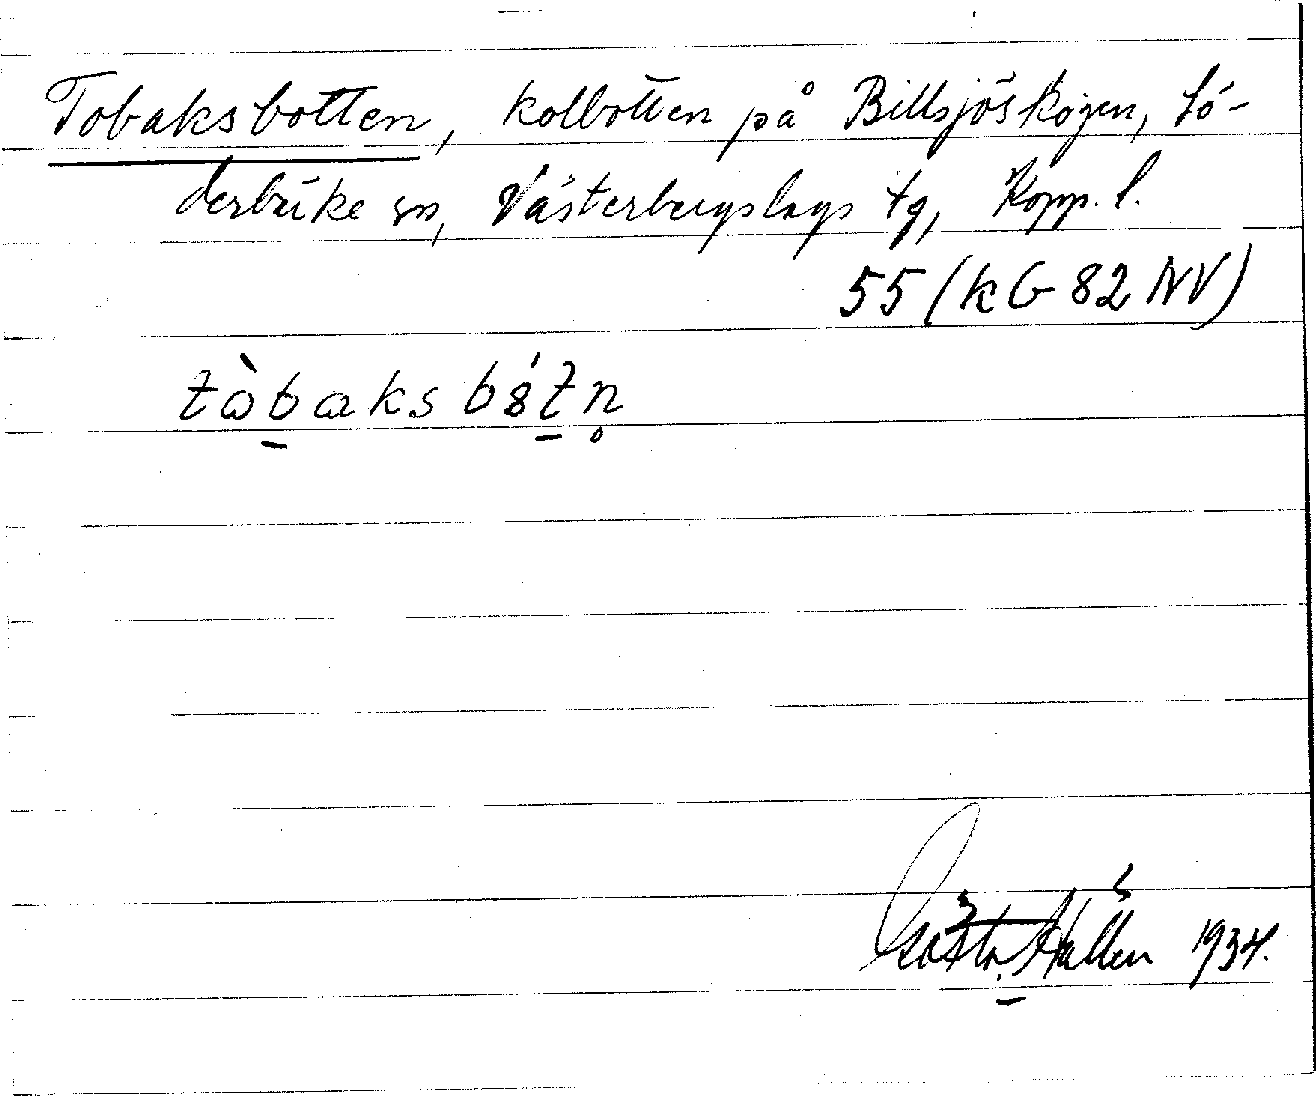 Tobaksbotten, kolbotten på Billsjöskogen, Sö-
derbärke sn, Västerbergslags tg, Kopp. l.
55 (kG 82 NV)
tàbaksbótn̥
Gösta Hallén 1934.